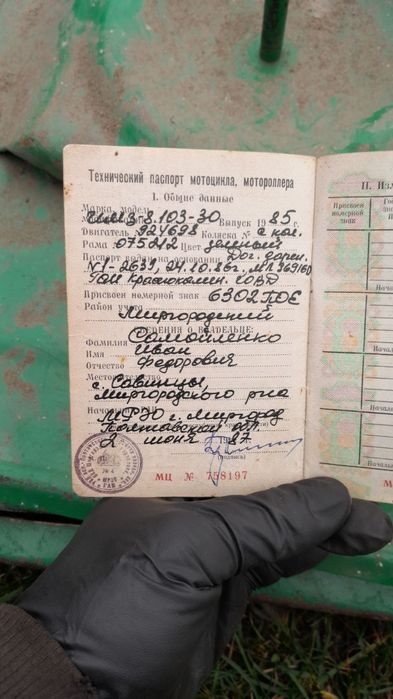 Технический паспорт мотоцикла, мотороллера
I. Общие данные
Марка, модель
ИМЗ 8.103-30 Выпуск 1985
Двигатель № 924698 Коляска № с кол.
Рама 075212 Цвет зеленый
Паспорт выдан на основании Дог. дарен.
N1-2639, 24.10.86г, МЛ 969160
ГАИ
Присвоен номерной знак 6302 ПОЕ
Район учета
Миргородский
СВЕДЕНИЯ О ВЛАДЕЛЬЦЕ:
Фамилия Самойленко
Имя Иван
Отчество Федорович
Местожительство
с. Савинцы,
Миргородского р-на
МРЭО г. Миргород
Полтавской обл
2 июня 1987
(подпись)
МЦ № 758197
II. Из
Присвоен номерной знак